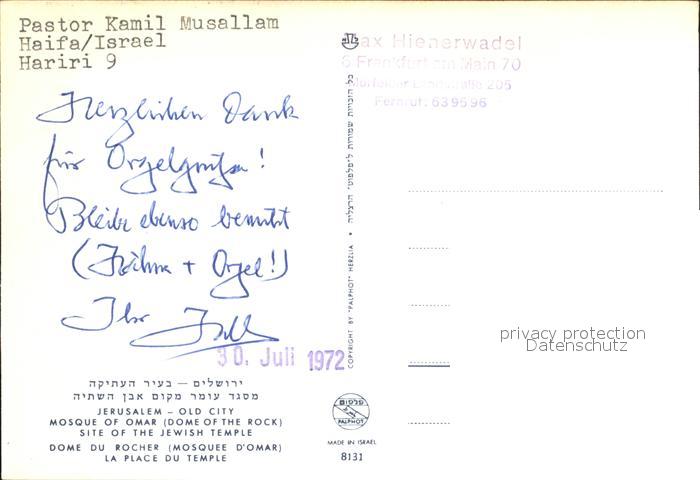 Pastor Kamil Musallam
Haifa/Israel
Hariri 9
Herzlichen Dank
für Orgelgrüße!
Bleibe ebenso bemüht
+ Orgel!)
Ihr
30. Juli 1972
ירושלים — בעיר העתיקה
מסגד עומר מקום אבן השתיה
JERUSALEM – OLD CITY
MOSQUE OF OMAR (DOME OF THE ROCK)
SITE OF THE JEWISH TEMPLE
DOME DU ROCHER (MOSQUEE D'OMAR)
LA PLACE DU TEMPLE
כל הזכויות שמורות ל"פלפוט" הרצליה
COPYRIGHT BY "PALPHOT" HERZLIA
פלפוט
PALPHOT
MADE IN ISRAEL
8131
Max Hienerwadel
6 Frankfurt am Main 70
Mörfelder Landstraße 205
Fernruf: 639596
privacy protection
Datenschutz